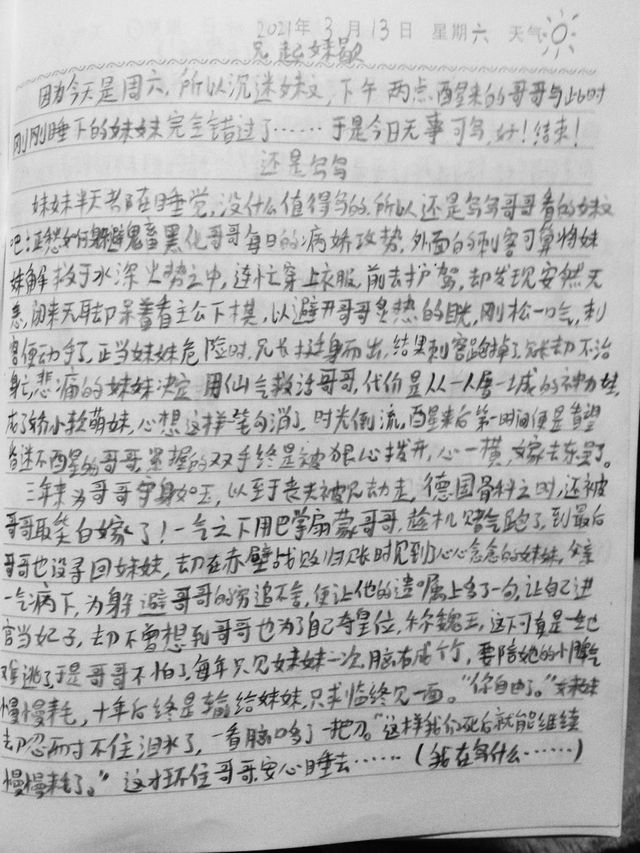 2021年3月13日 星期六 天气
兄起妹歇
因为今天是周六,所以沉迷妹文,下午两点醒来的哥哥与此时
刚刚睡下的妹妹完全错过了……于是今日无事可写,好!结束!
还是写写
妹妹半天都在睡觉,没什么值得写的,所以还是写写哥哥看的妹文
吧:正愁如何躲避鬼畜黑化哥哥每日的病娇攻势,外面的刺客可算将妹
妹解救于水深火势之中,连忙穿上衣服,前去护驾,却发现安然无
恙,闲来无事却呆着看主公下棋,以避开哥哥炙热的目光,刚松一口气,刺
客便动手了,正当妹妹危险时,兄长挺身而出,结果刺客跑掉了,兄长却不治
身亡,悲痛的妹妹决定用仙气救活哥哥,代价是从一人屠一城的神力娃,
成了娇小软萌妹,心想这样一笔勾消了,时光倒流,醒来后第一时间便是看望
昏迷不醒的哥哥,紧握的双手终是被狠心拨开,心一横,嫁去东吴了。
三年来为哥哥守身如玉,以至于丧夫被兄劫走,德国骨科之时,还被
哥哥取笑白嫁了!一气之下用巴掌扇蒙哥哥,趁机赌气跑了,到最后
哥哥也没寻回妹妹,却在赤壁战败归账时见到了心心念念的妹妹,父亲
一气病下,为躲避哥哥的穷追不舍,便让他的遗嘱上多了一句,让自己进
宫当妃子,却不曾想到哥哥也为了自己夺皇位,称魏王,这下可真是
难逃了,于是哥哥不怕了,每年只见妹妹一次,胸有成竹,要陪她的小脾气
慢慢耗,十年后终是输给妹妹,只求临终见一面。“你自由了。”妹妹
却忍耐不住泪水了,一看胸口多了一把刀。“这样我们死后就能继续
慢慢耗了。”这才抱住哥哥,安心睡去……(我在写什么……)